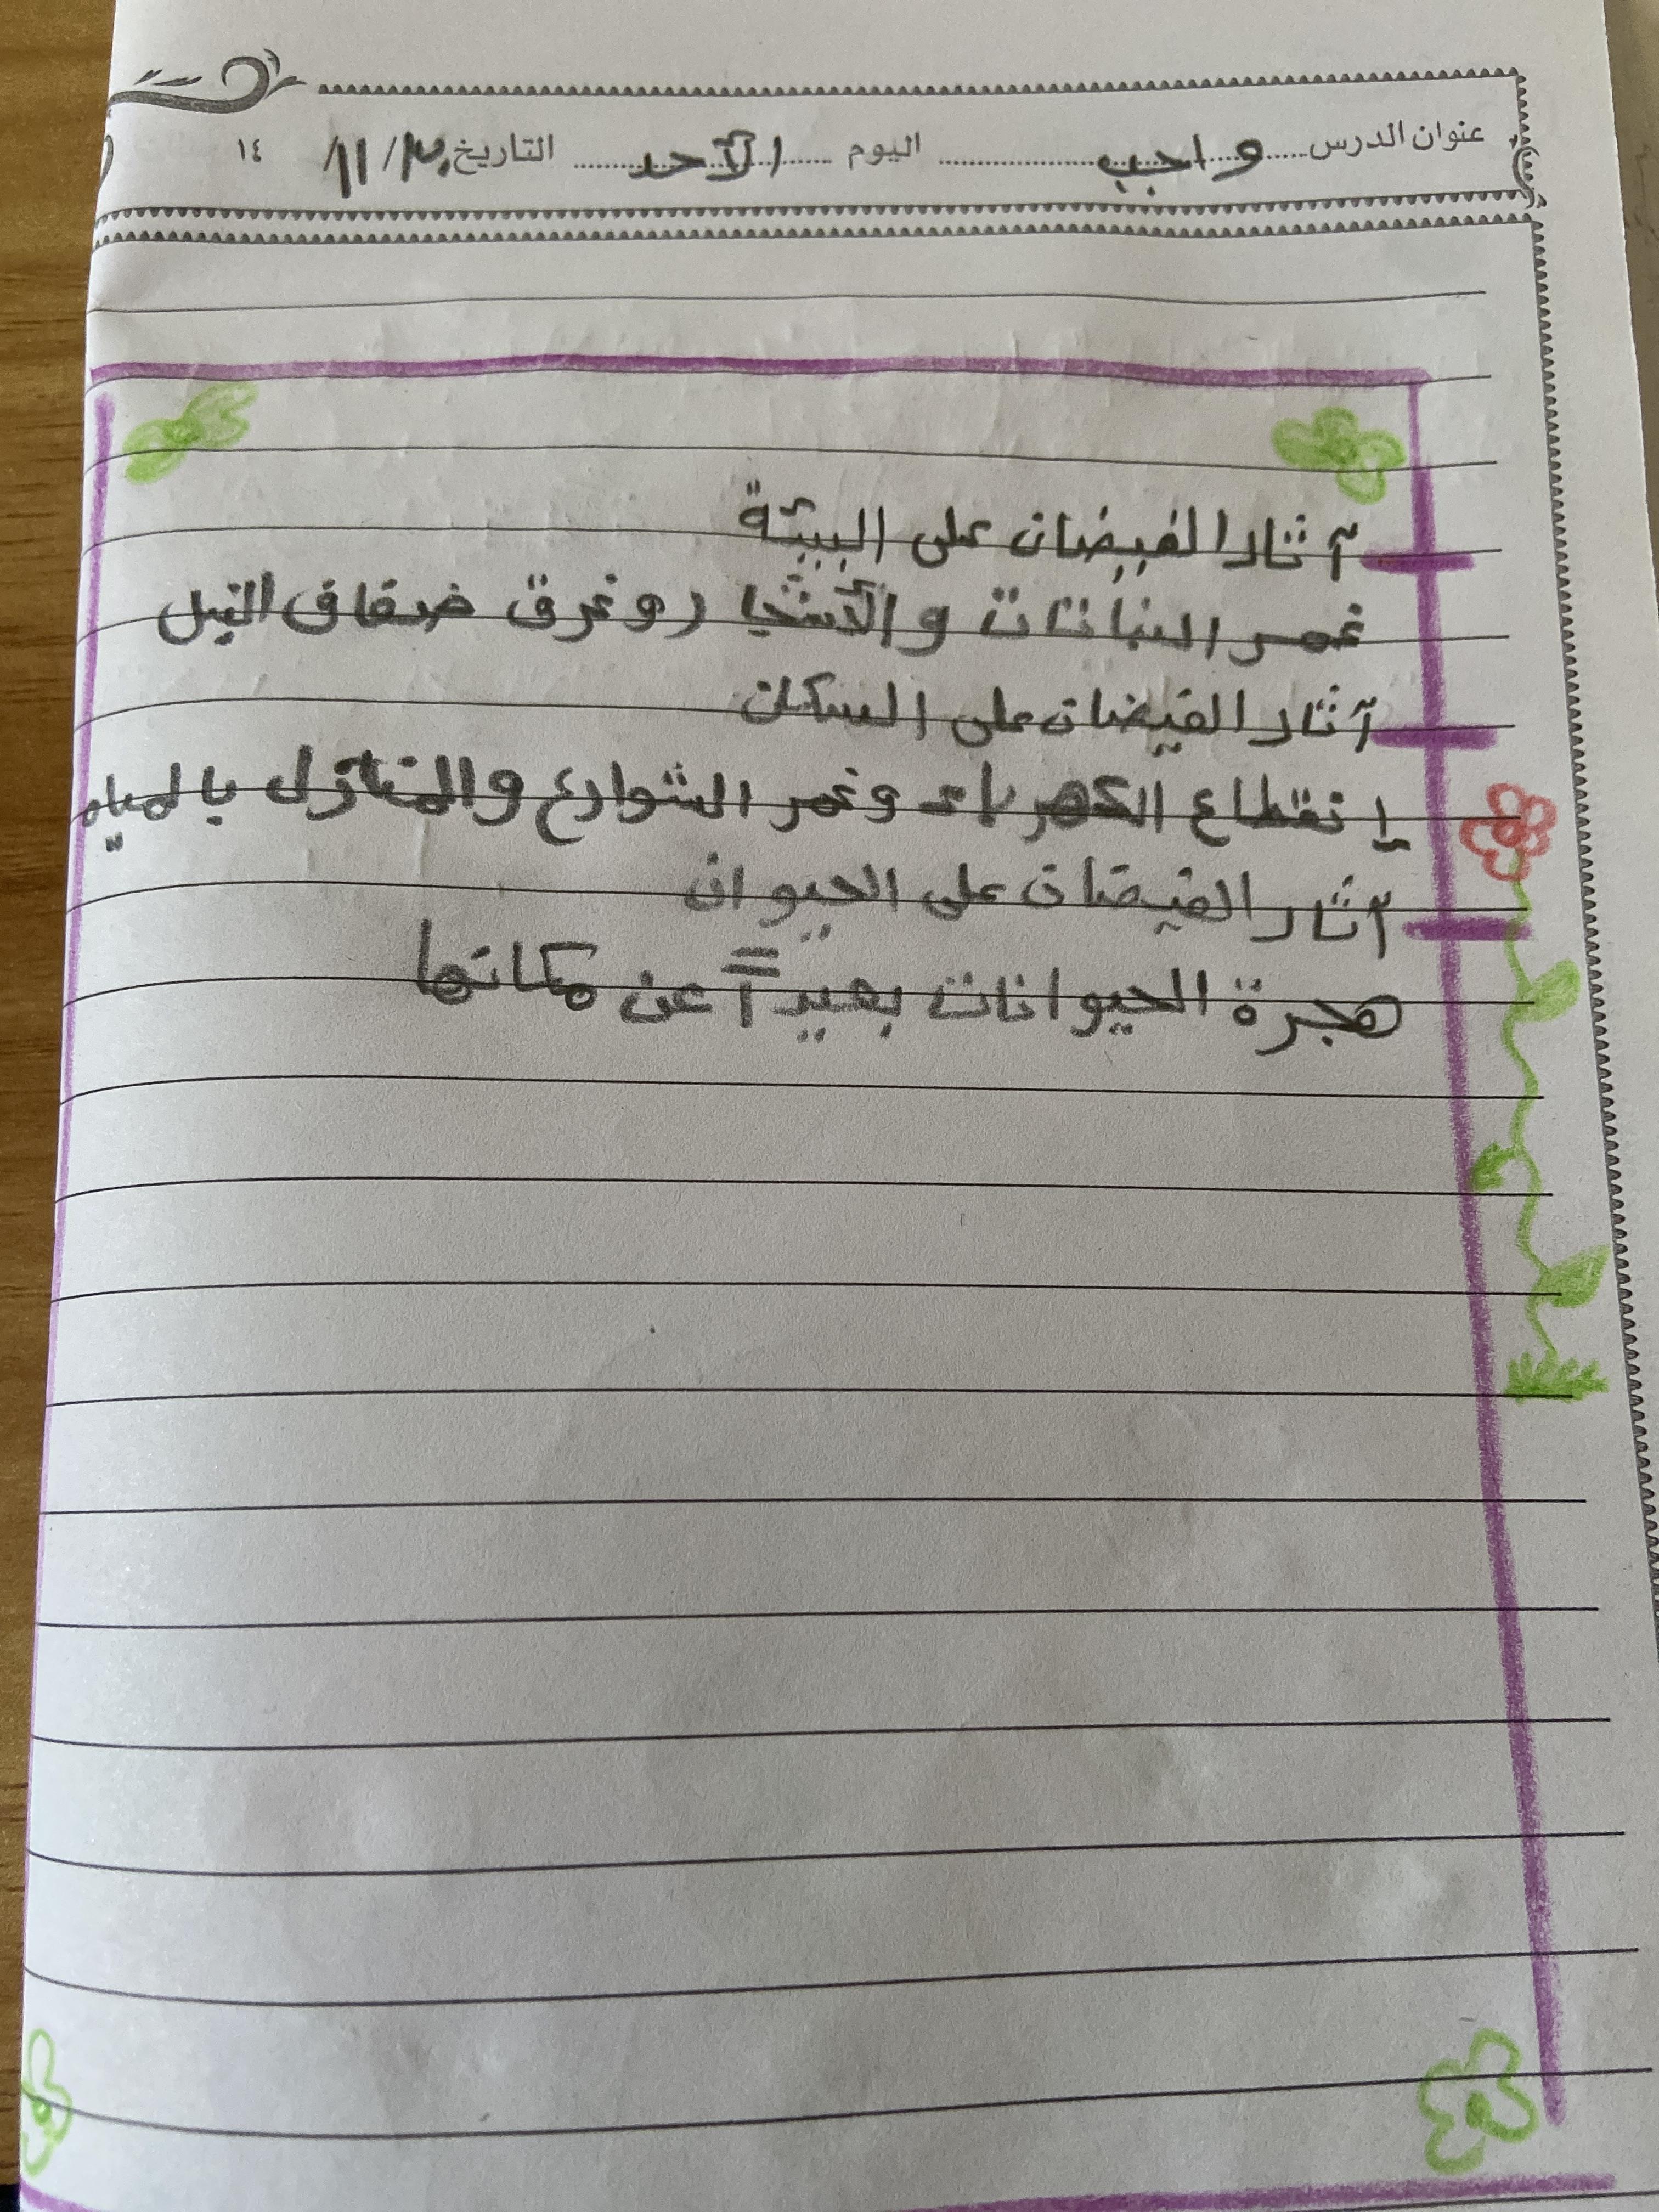 عنوان الدرس واجب اليوم الأحد التاريخ ٣٠/ ١١/ ١٤
آثار الفيضان على البيئة
غمر النباتات والأشجار وغرق ضفاف النيل
آثار الفيضان على السكان
إنقطاع الكهرباء وغمر الشوارع والمنازل بالمياه
آثار الفيضان على الحيوان
هجرة الحيوانات بعيداً عن مكانها